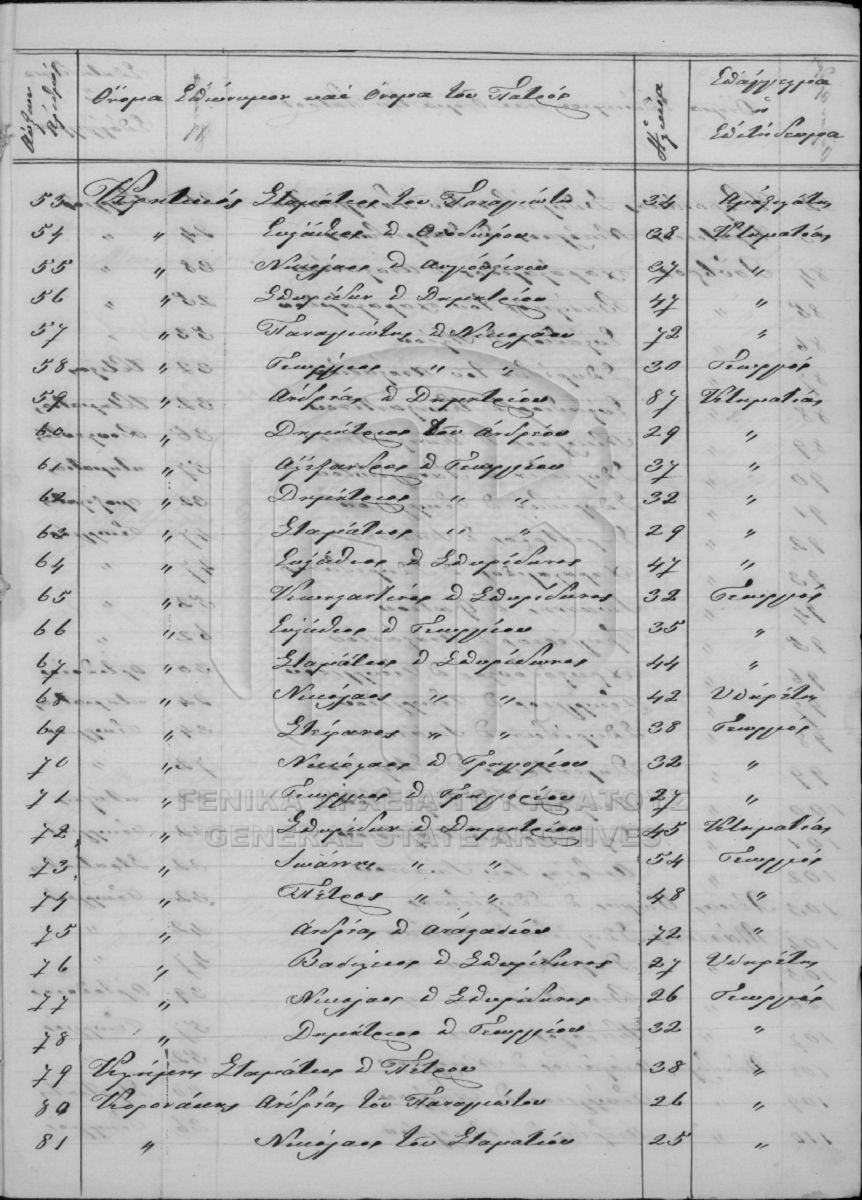 Αύξων Αριθμός Όνομα Επώνυμον και Όνομα του Πατρός Ηλικία Επάγγελμα ή Επιτήδευμα
53 Σταμάτιος του Παναγιώτη 34 Αμαξηλάτης
54 " Ευστάθιος " Θεοδώρου 28 Κτηματίας
55 " Νικόλαος " 37 "
56 " Σπυρίδων " Δημητρίου 47 "
57 " Παναγιώτης " Νικολάου 72 "
58 " Γεώργιος " " 30 Γεωργός
59 " Ανδρέας " Δημητρίου 87 Κτηματίας
60 " Δημήτριος του Ανδρέου 29 "
61 " Αλέξανδρος " Γεωργίου 37 "
62 " Δημήτριος " " 32 "
63 " Σταμάτιος " " 29 "
64 " Ευστάθιος " Σπυρίδωνος 47 "
65 " Κωνσταντίνος " Σπυρίδωνος 32 Γεωργός
66 " Ευστάθιος " Γεωργίου 35 "
67 " Σταμάτιος " Σπυρίδωνος 44 "
68 " Νικόλαος " " 42 Υπηρέτης
69 " Στέφανος " " 38 Γεωργός
70 " Νικόλαος " Γρηγορίου 32 "
71 " Γεώργιος " Γρηγορίου 27 "
ΓΕΝΙΚΑ ΑΡΧΕΙΑ ΤΟΥ ΚΡΑΤΟΥΣ
72 " Σπυρίδων " Δημητρίου 45 Κτηματίας
GENERAL STATE ARCHIVES
73 " Ιωάννης " " 54 Γεωργός
74 " Πέτρος " " 48 "
75 " Ανδρέας " Αναστασίου 72 "
76 " Βασίλειος " Σπυρίδωνος 27 Υπηρέτης
77 " Νικόλαος " Σπυρίδωνος 26 Γεωργός
78 " Δημήτριος " Γεωργίου 32 "
79 Σταμάτιος " Πέτρου 38 "
80 Κορονάκης Ανδρέας του Παναγιώτου 26 "
81 " Νικόλαος του Σταματίου 25 "